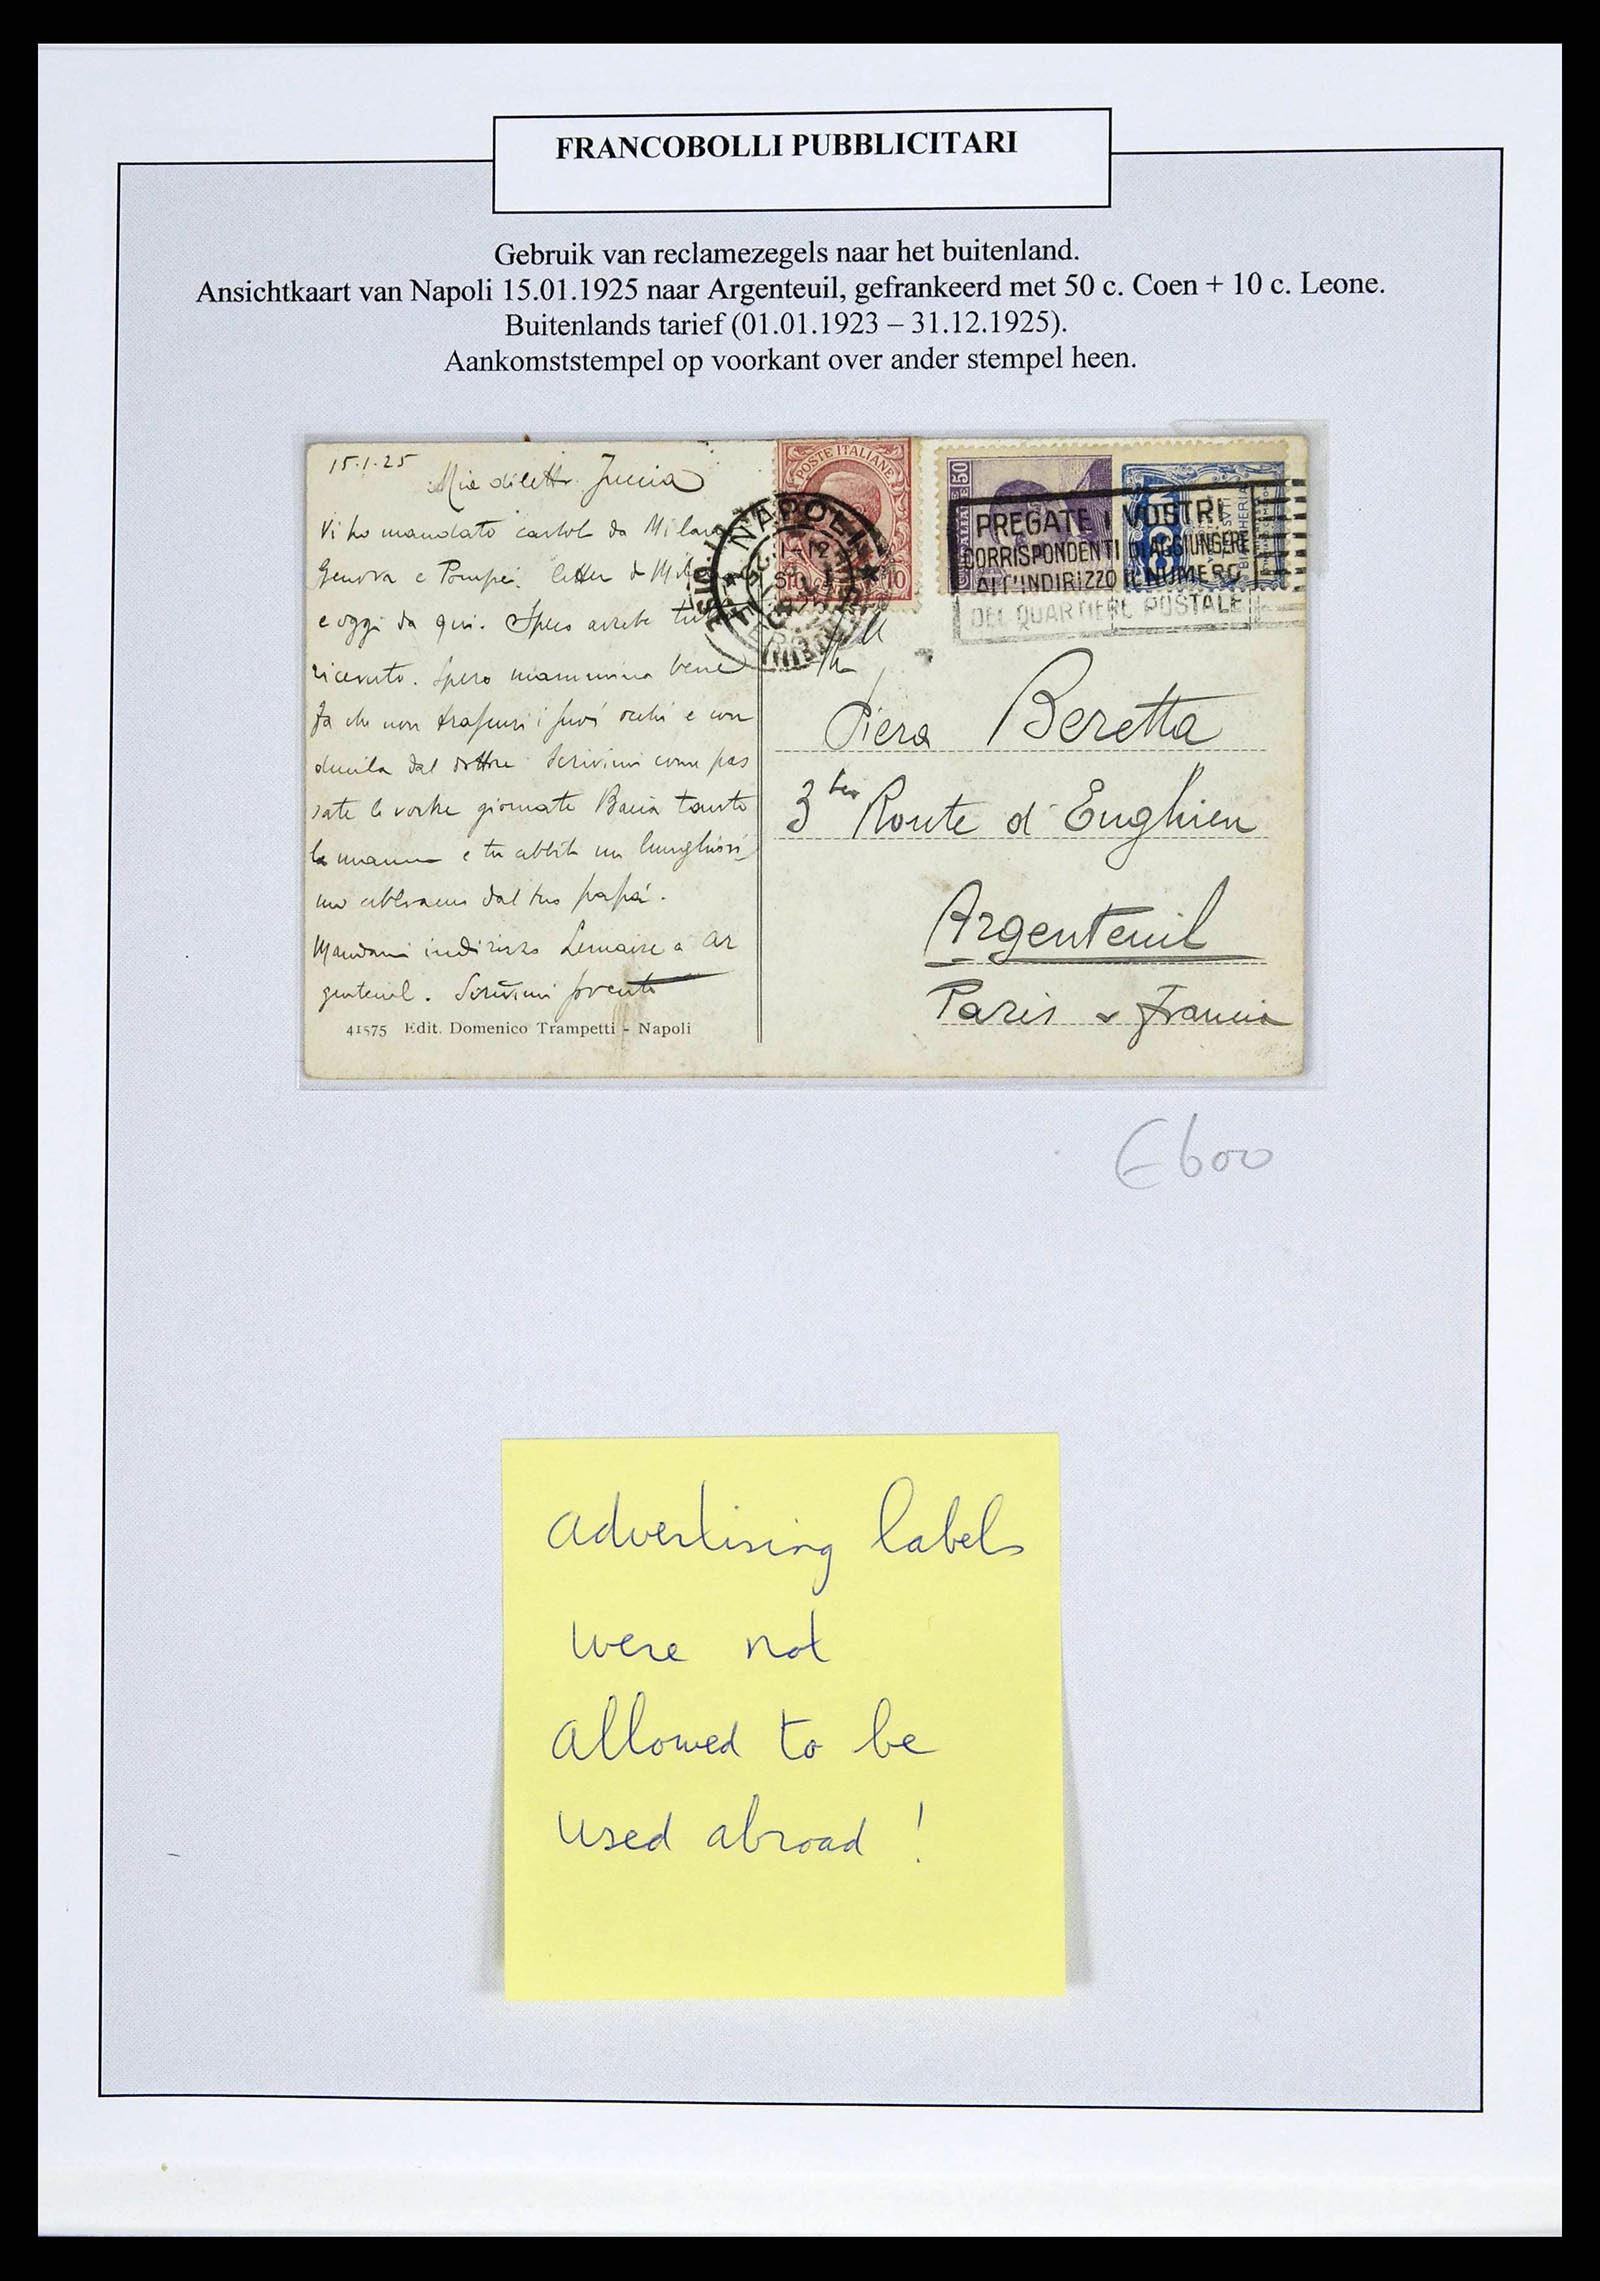 FRANCOBOLLI PUBBLICITARI
Gebruik van reclamezegels naar het buitenland.
Ansichtkaart van Napoli 15.01.1925 naar Argenteuil, gefrankeerd met 50 c. Coen + 10 c. Leone.
Buitenlands tarief (01.01.1923 – 31.12.1925).
Aankomststempel op voorkant over ander stempel heen.
15.1.25
Vi ho mandato cartol da Milano
Genova e Pompei. letter da Mil
e oggi da qui. Spero avrete tutto
ricevuto. Spero mammina bene
fa che non trascuri i suoi occhi e con
ducila dal dottore. Scrivimi come pas
sate le vostre giornate Bacia tanto
la mamma e tu abbiti un lunghissi
mo abbraccio dal tuo papà.
Mandami indirizzo Lemaire a Ar
genteuil. Scrivimi
41575 Edit. Domenico Trampetti - Napoli
POSTE ITALIANE
10
50
NAPOLI
PREGATE I VOSTRI
CORRISPONDENTI DI AGGIUNGERE
ALL'INDIRIZZO IL NUMERO
DEL QUARTIERE POSTALE
Piera Beretta
3 ter Route d'Enghien
Argenteuil
Paris Francia
€ 600
advertising labels
were not
allowed to be
used abroad !